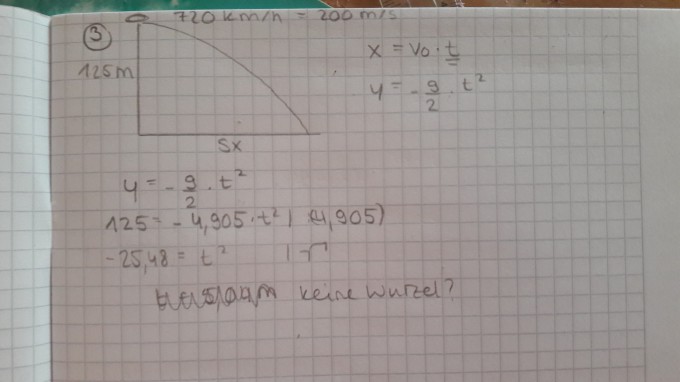 ③ 720 km/h = 200 m/s
x = v₀ · t
125m
y = - g/2 · t²
Sx
y = - g/2 · t²
125 = - 4,905 · t² | (-4,905)
-25,48 = t² | √
keine Wurzel?